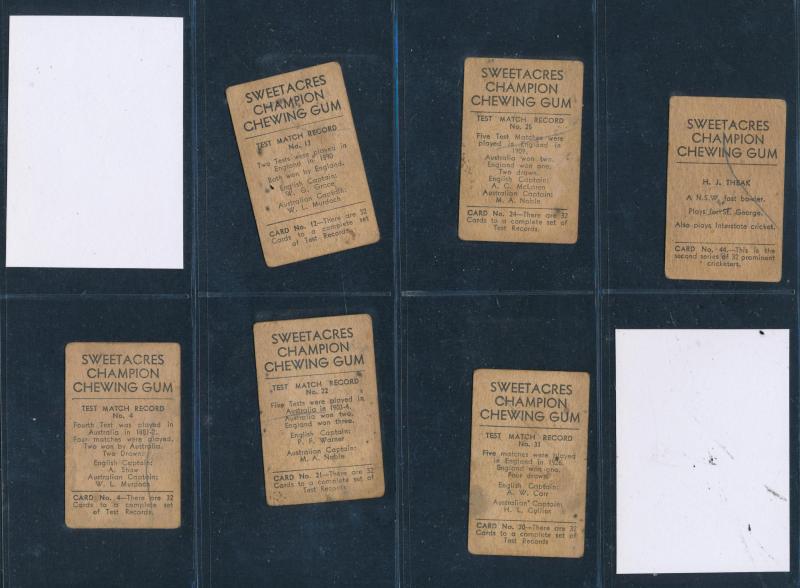 SWEETACRES
CHAMPION
CHEWING GUM
TEST MATCH RECORD
No. 13
Two Tests were played in
England in 1890
Both won by England.
English Captain:
W. G. Grace
Australian Captain:
W. L. Murdoch
CARD No. 12—There are 32
Cards to a complete set
of Test Records.
SWEETACRES
CHAMPION
CHEWING GUM
TEST MATCH RECORD
No. 25
Five Test Matches were
played in England in
1909.
Australia won two.
England won one.
Two drawn.
English Captain:
A. C. McLaren
Australian Captain:
M. A. Noble
CARD No. 24—There are 32
Cards to a complete set
of Test Records.
SWEETACRES
CHAMPION
CHEWING GUM
H. J. THEAK
A N.S.W. fast bowler.
Plays for St. George.
Also plays Interstate cricket.
CARD No. 44.—This is the
second series of 32 prominent
cricketers.
SWEETACRES
CHAMPION
CHEWING GUM
TEST MATCH RECORD
No. 4
Fourth Test was played in
Australia in 1881-2.
Four matches were played.
Two won by Australia.
Two Drawn.
English Captain:
A. Shaw
Australian Captain:
W. L. Murdoch
CARD No. 4—There are 32
Cards to a complete set
of Test Records.
SWEETACRES
CHAMPION
CHEWING GUM
TEST MATCH RECORD
No. 22
Five Tests were played in
Australia in 1903-4.
Australia won two,
England won three.
English Captain:
P. F. Warner
Australian Captain:
M. A. Noble
CARD No. 21—There are 32
Cards to a complete set of
Test Records
SWEETACRES
CHAMPION
CHEWING GUM
TEST MATCH RECORD
No. 31
Five matches were played
in England in 1926.
England won one.
Four drawn.
English Captain:
A. W. Carr
Australian Captain:
H. L. Collins
CARD No. 30—There are 32
Cards to a complete set of
Test Records